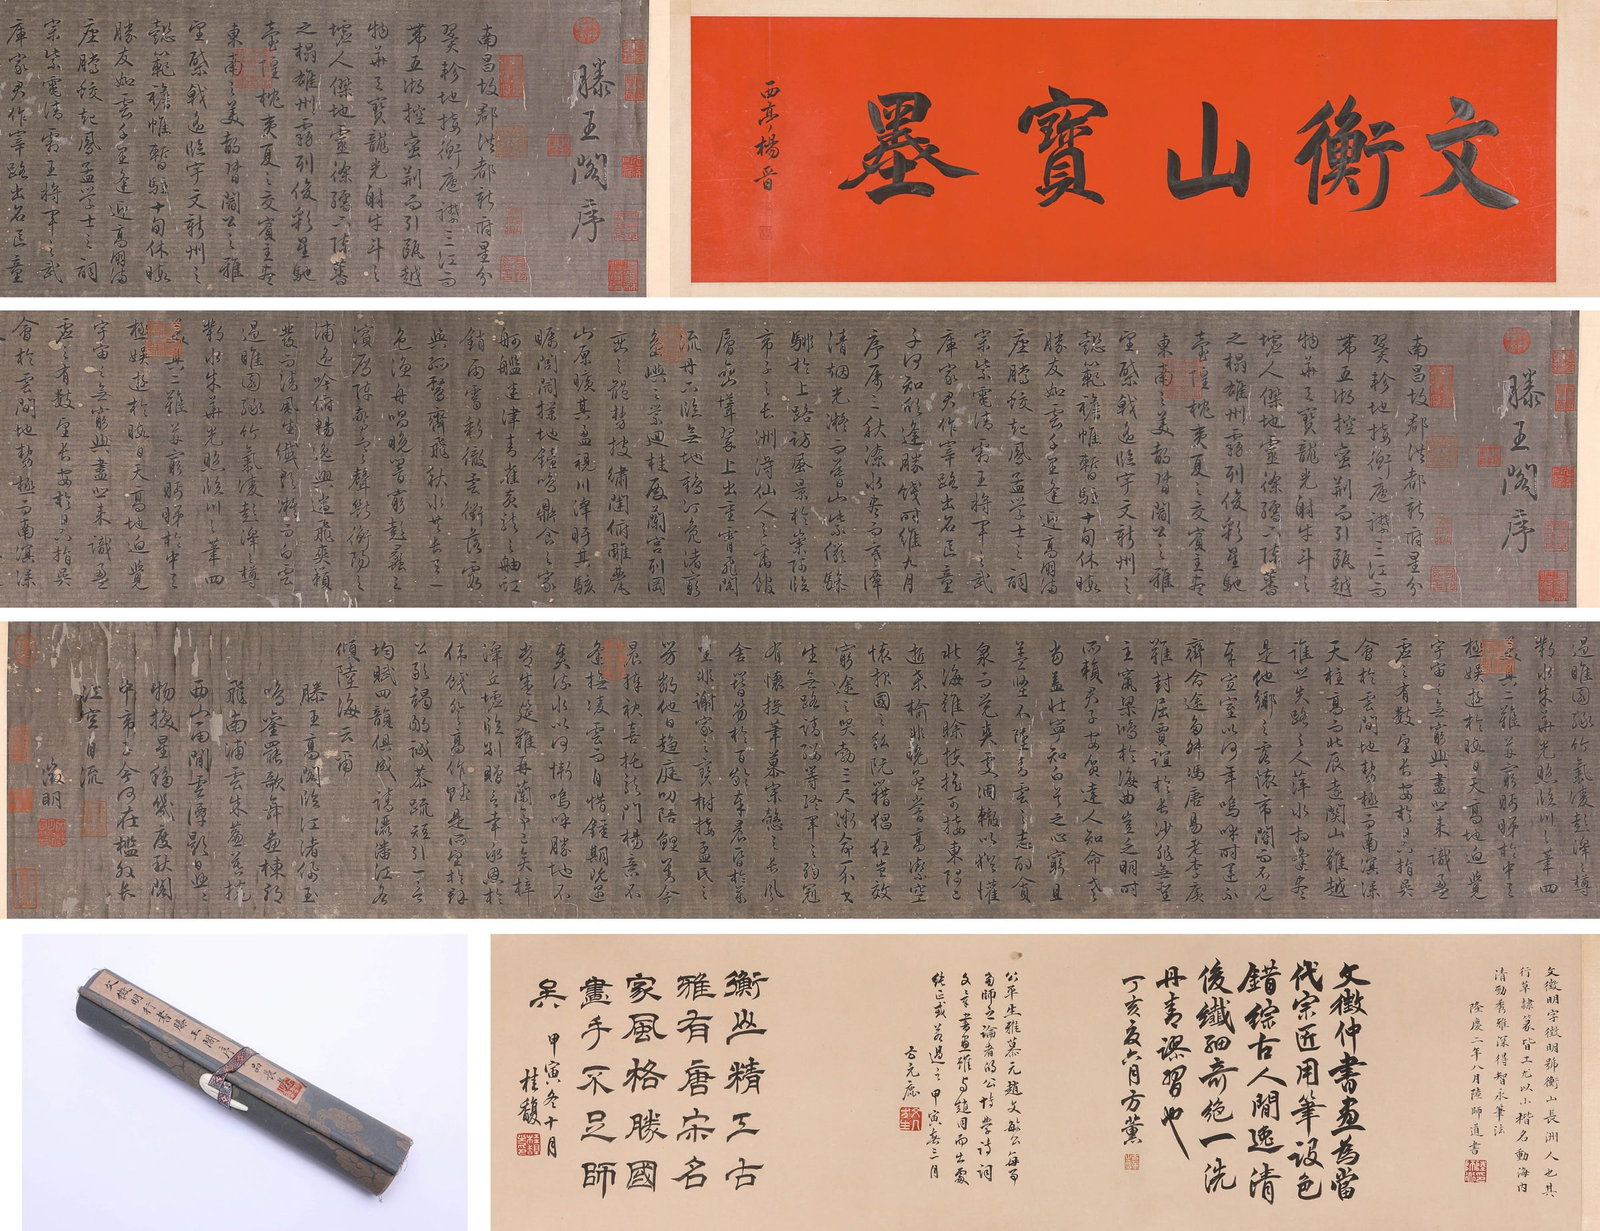 文衡山寶墨
西亭楊晉
滕王閣序
南昌故郡洪都新府星分
翼軫地接衡廬襟三江而
帶五湖控蠻荊而引甌越
物華天寶龍光射牛斗之
墟人傑地靈徐孺下陳蕃
之榻雄州霧列俊彩星馳
臺隍枕夷夏之交賓主盡
東南之美都督閻公之雅
望棨戟遙臨宇文新州之
懿範襜帷暫駐十旬休暇
勝友如雲千里逢迎高朋滿
座騰蛟起鳳孟學士之詞
宗紫電清霜王將軍之武
庫家君作宰路出名區童
滕王閣序
南昌故郡洪都新府星分
翼軫地接衡廬襟三江而
帶五湖控蠻荊而引甌越
物華天寶龍光射牛斗之
墟人傑地靈徐孺下陳蕃
之榻雄州霧列俊彩星馳
臺隍枕夷夏之交賓主盡
東南之美都督閻公之雅
望棨戟遙臨宇文新州之
懿範襜帷暫駐十旬休暇
勝友如雲千里逢迎高朋滿
座騰蛟起鳳孟學士之詞
宗紫電清霜王將軍之武
庫家君作宰路出名區童
子何知躬逢勝餞時維九月
序屬三秋潦水盡而寒潭
清烟光凝而暮山紫儼驂
騑於上路訪風景於崇阿臨
帝子之長洲得仙人之舊館
層巒聳翠上出重霄飛閣
流丹下臨無地鶴汀鳧渚窮
島嶼之縈迴桂殿蘭宮列岡
巒之體勢披繡闥俯雕甍
山原曠其盈視川澤盱其駭
矚閭閻撲地鐘鳴鼎食之家
舸艦迷津青雀黃龍之舳虹
銷雨霽彩徹雲衢落霞
與孤鶩齊飛秋水共長天一
色漁舟唱晚響窮彭蠡之
濱雁陣驚寒聲斷衡陽之
浦遙吟俯暢逸興遄飛爽籟
發而清風生纖歌凝而白雲
遏睢園綠竹氣凌彭澤之樽
鄴水朱華光照臨川之筆四
美具二難并窮睇眄於中天
極娛遊於暇日天高地迥覺
宇宙之無窮興盡悲來識盈
虛之有數望長安於日下指吳
會於雲間地勢極而南溟深
遏睢園綠竹氣凌彭澤之樽
鄴水朱華光照臨川之筆四
美具二難并窮睇眄於中天
極娛遊於暇日天高地迥覺
宇宙之無窮興盡悲來識盈
虛之有數望長安於日下指吳
會於雲間地勢極而南溟深
天柱高而北辰遠關山難越
誰悲失路之人萍水相逢盡
是他鄉之客懷帝閽而不見
奉宣室以何年嗚呼時運不
齊命途多舛馮唐易老李廣
難封屈賈誼於長沙非無聖
主竄梁鴻於海曲豈乏明時
所賴君子安貧達人知命老
當益壯寧知白首之心窮且
益堅不墜青雲之志酌貪
泉而覺爽處涸轍以猶懽
北海雖賒扶搖可接東隅已
逝桑榆非晚孟嘗高潔空
懷報國之心阮籍猖狂豈效
窮途之哭勃三尺微命一介書
生無路請纓等終軍之弱冠
有懷投筆慕宗愨之長風
舍簪笏於百齡奉晨昏於萬
里非謝家之寶樹接孟氏之
芳鄰他日趨庭叨陪鯉對今
晨捧袂喜托龍門楊意不
逢撫凌雲而自惜鍾期既遇
奏流水以何慚嗚呼勝地不
常盛筵難再蘭亭已矣梓
澤丘墟臨別贈言幸承恩於
偉餞登高作賦是所望於群
公敢竭鄙誠恭疏短引一言
均賦四韻俱成請灑潘江各
傾陸海云爾
滕王高閣臨江渚佩玉
鳴鑾罷歌舞畫棟朝
飛南浦雲朱簾暮捲
西山雨閒雲潭影日悠悠
物換星移幾度秋閣
中帝子今何在檻外長
江空自流
徵明
文徵明行書滕王閣序
文徵明字徵明號衡山長洲人也其
行草隸篆皆工尤以小楷名動海內
清勁秀雅深得智永筆法
隆慶二年八月陸師道書
文徵仲書畫為當
代宗匠用筆設色
錯綜古人間逸清
俊纖細奇絕一洗
丹青謬習也
丁亥夏六月方薰
公平生雅慕元趙文敏公每事
多師之論者以公博學詩詞
文章書畫雖與趙同而出處
純正或若過之甲寅春三月
方元鹿
衡山精工古
雅有唐宋名
家風格勝國
畫手不足師
矣 甲寅冬十月
桂馥